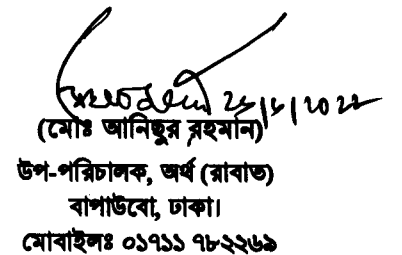 (মোঃ আনিছুর রহমান)
উপ-পরিচালক, অর্থ (রাবাত)
বাপাউবো, ঢাকা।
মোবাইলঃ ০১৭১১ ৭৮২২৬৯